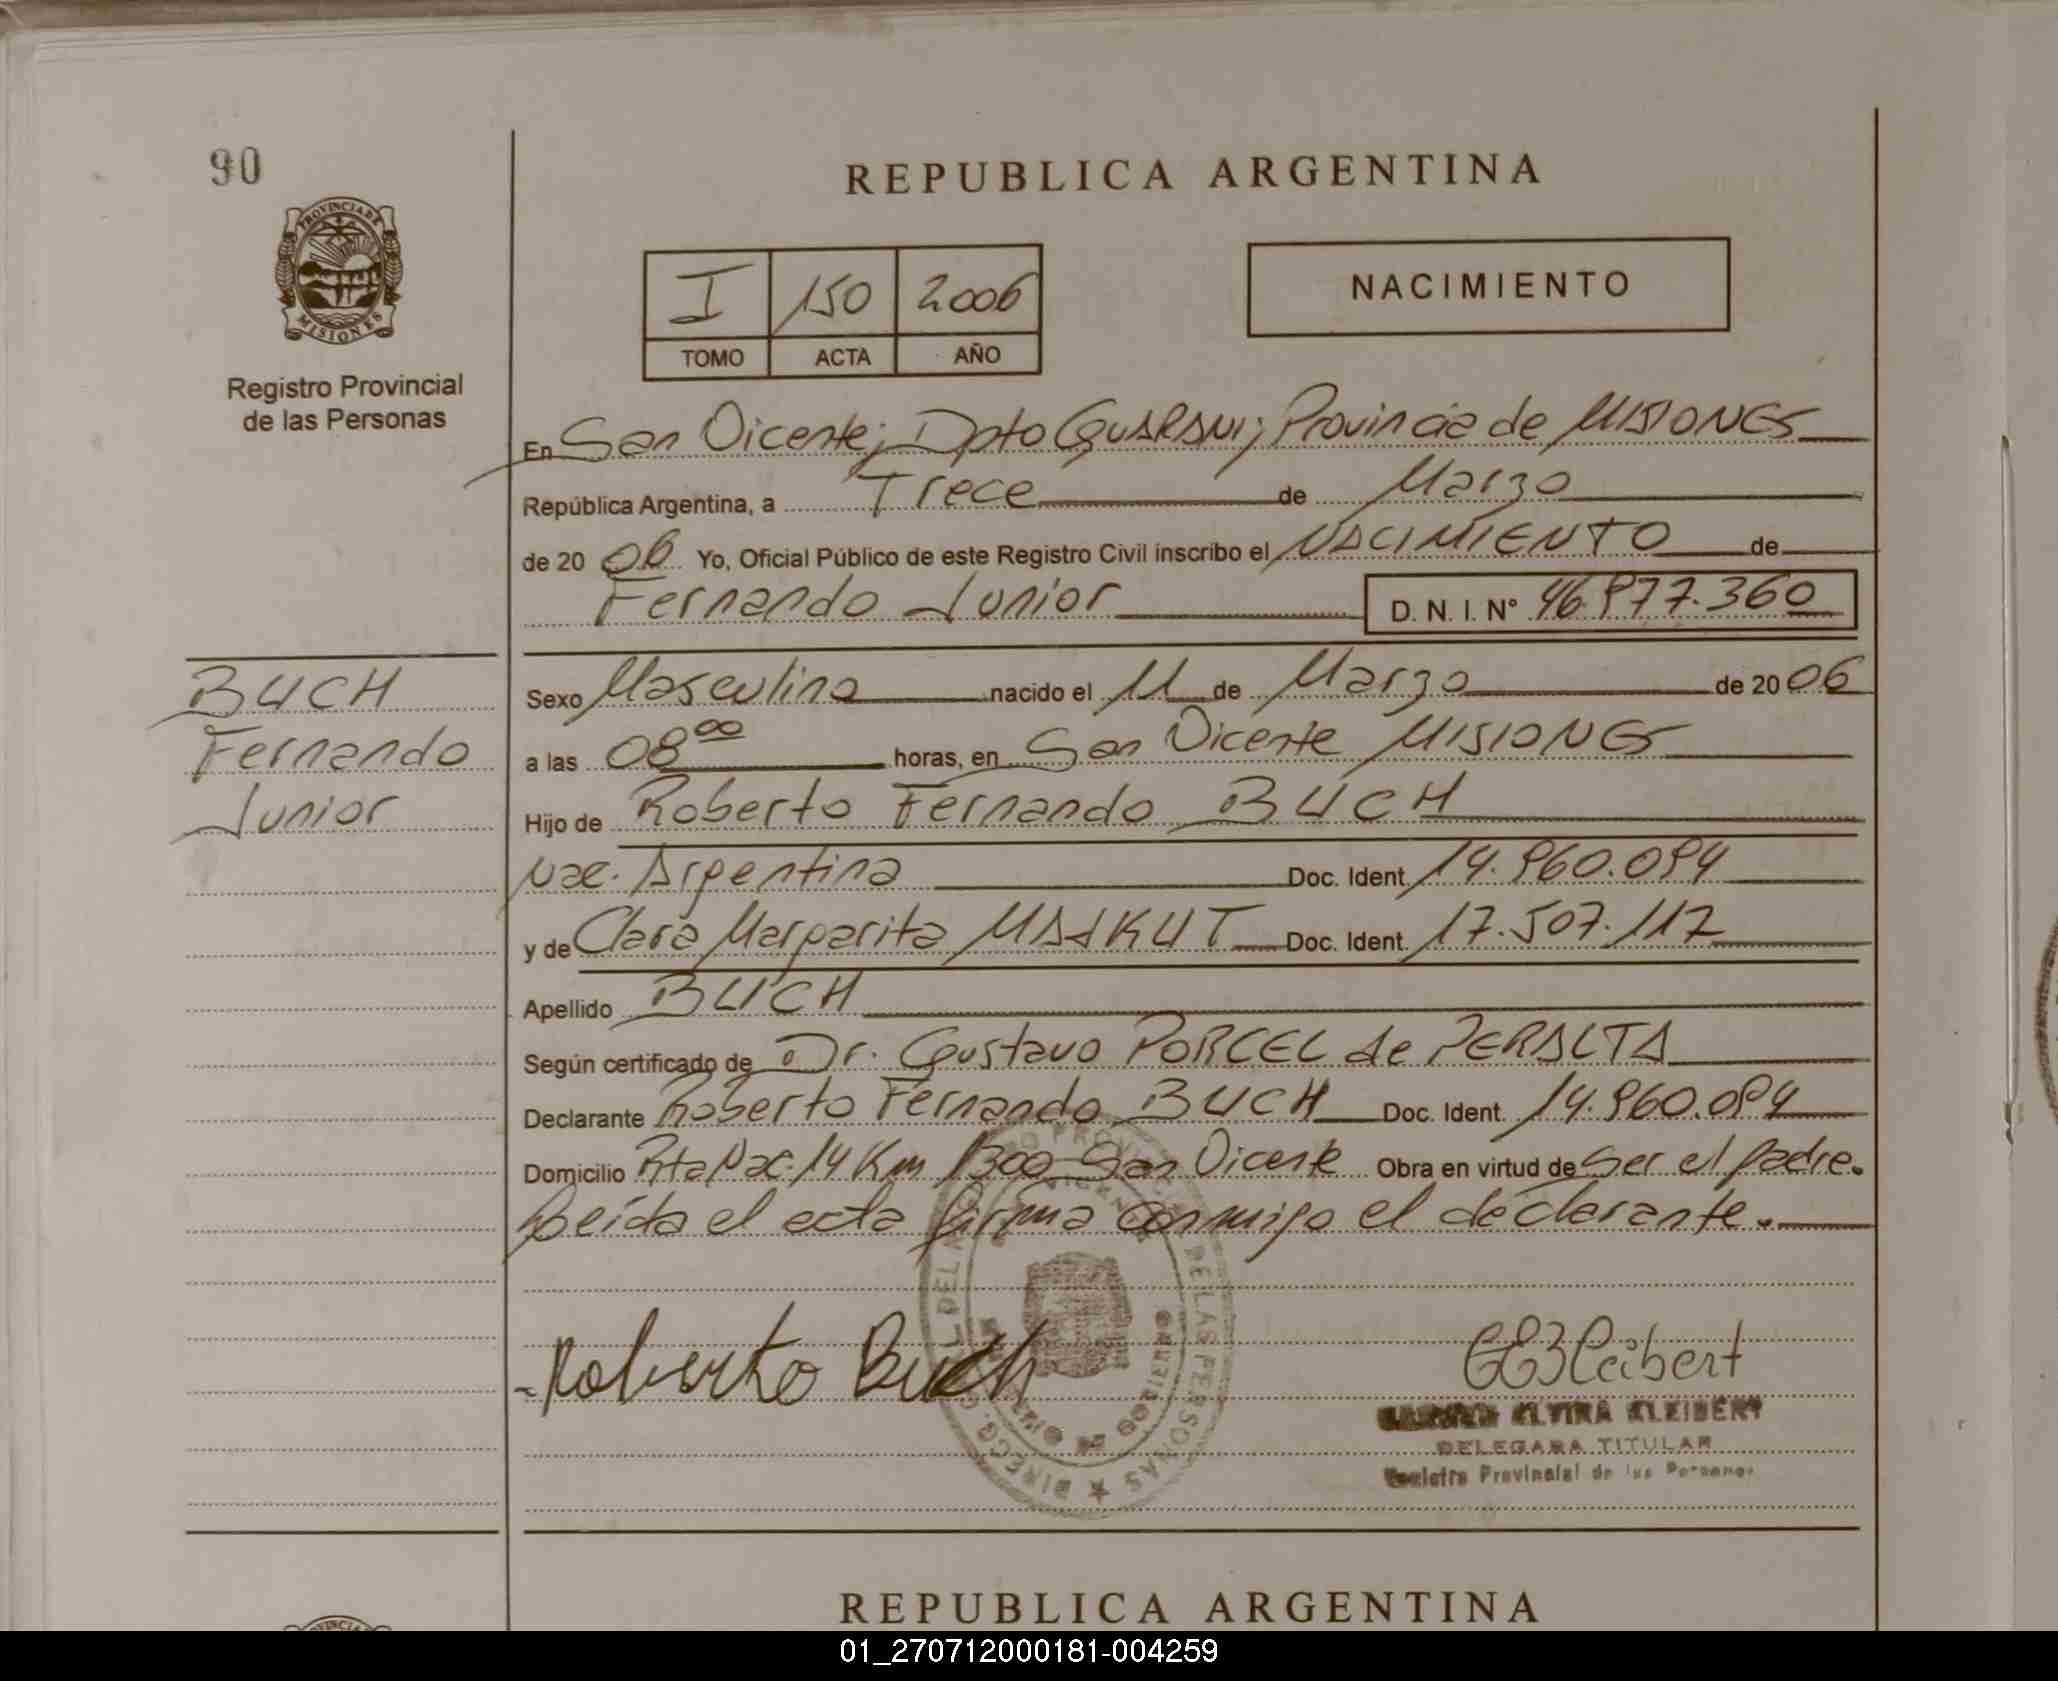 90
REPUBLICA ARGENTINA
PROVINCIA DE
MISIONES
I 150 2006
TOMO ACTA AÑO
NACIMIENTO
Registro Provincial
de las Personas
En San Vicente; Dpto GUARANI; Provincia de MISIONES
República Argentina, a Trece de Marzo
de 20 06 Yo, Oficial Público de este Registro Civil inscribo el NACIMIENTO de
Fernando Junior D. N. I. Nº
BUCH
Fernando
Junior
Sexo Masculino nacido el 11 de Marzo de 20 06
a las 08 00 horas, en San Vicente MISIONES
Hijo de Roberto Fernando BUCH
Nac. Argentina Doc. Ident.
y de Clara Margarita Doc. Ident. 17.507.117
Apellido BUCH
Según certificado de Dr. Gustavo PORCEL de PERALTA
Declarante Roberto Fernando BUCH Doc. Ident.
Domicilio Rta Nac. 14 Km 1300 San Vicente Obra en virtud de Ser el padre.
Leída el acta firma conmigo el declarante.
Roberto Buch
DE LAS PERSONAS
ELVIRA KLEIBERT
DELEGADA TITULAR
Registro Provincial de las Personas
REPUBLICA ARGENTINA
01_270712000181-004259